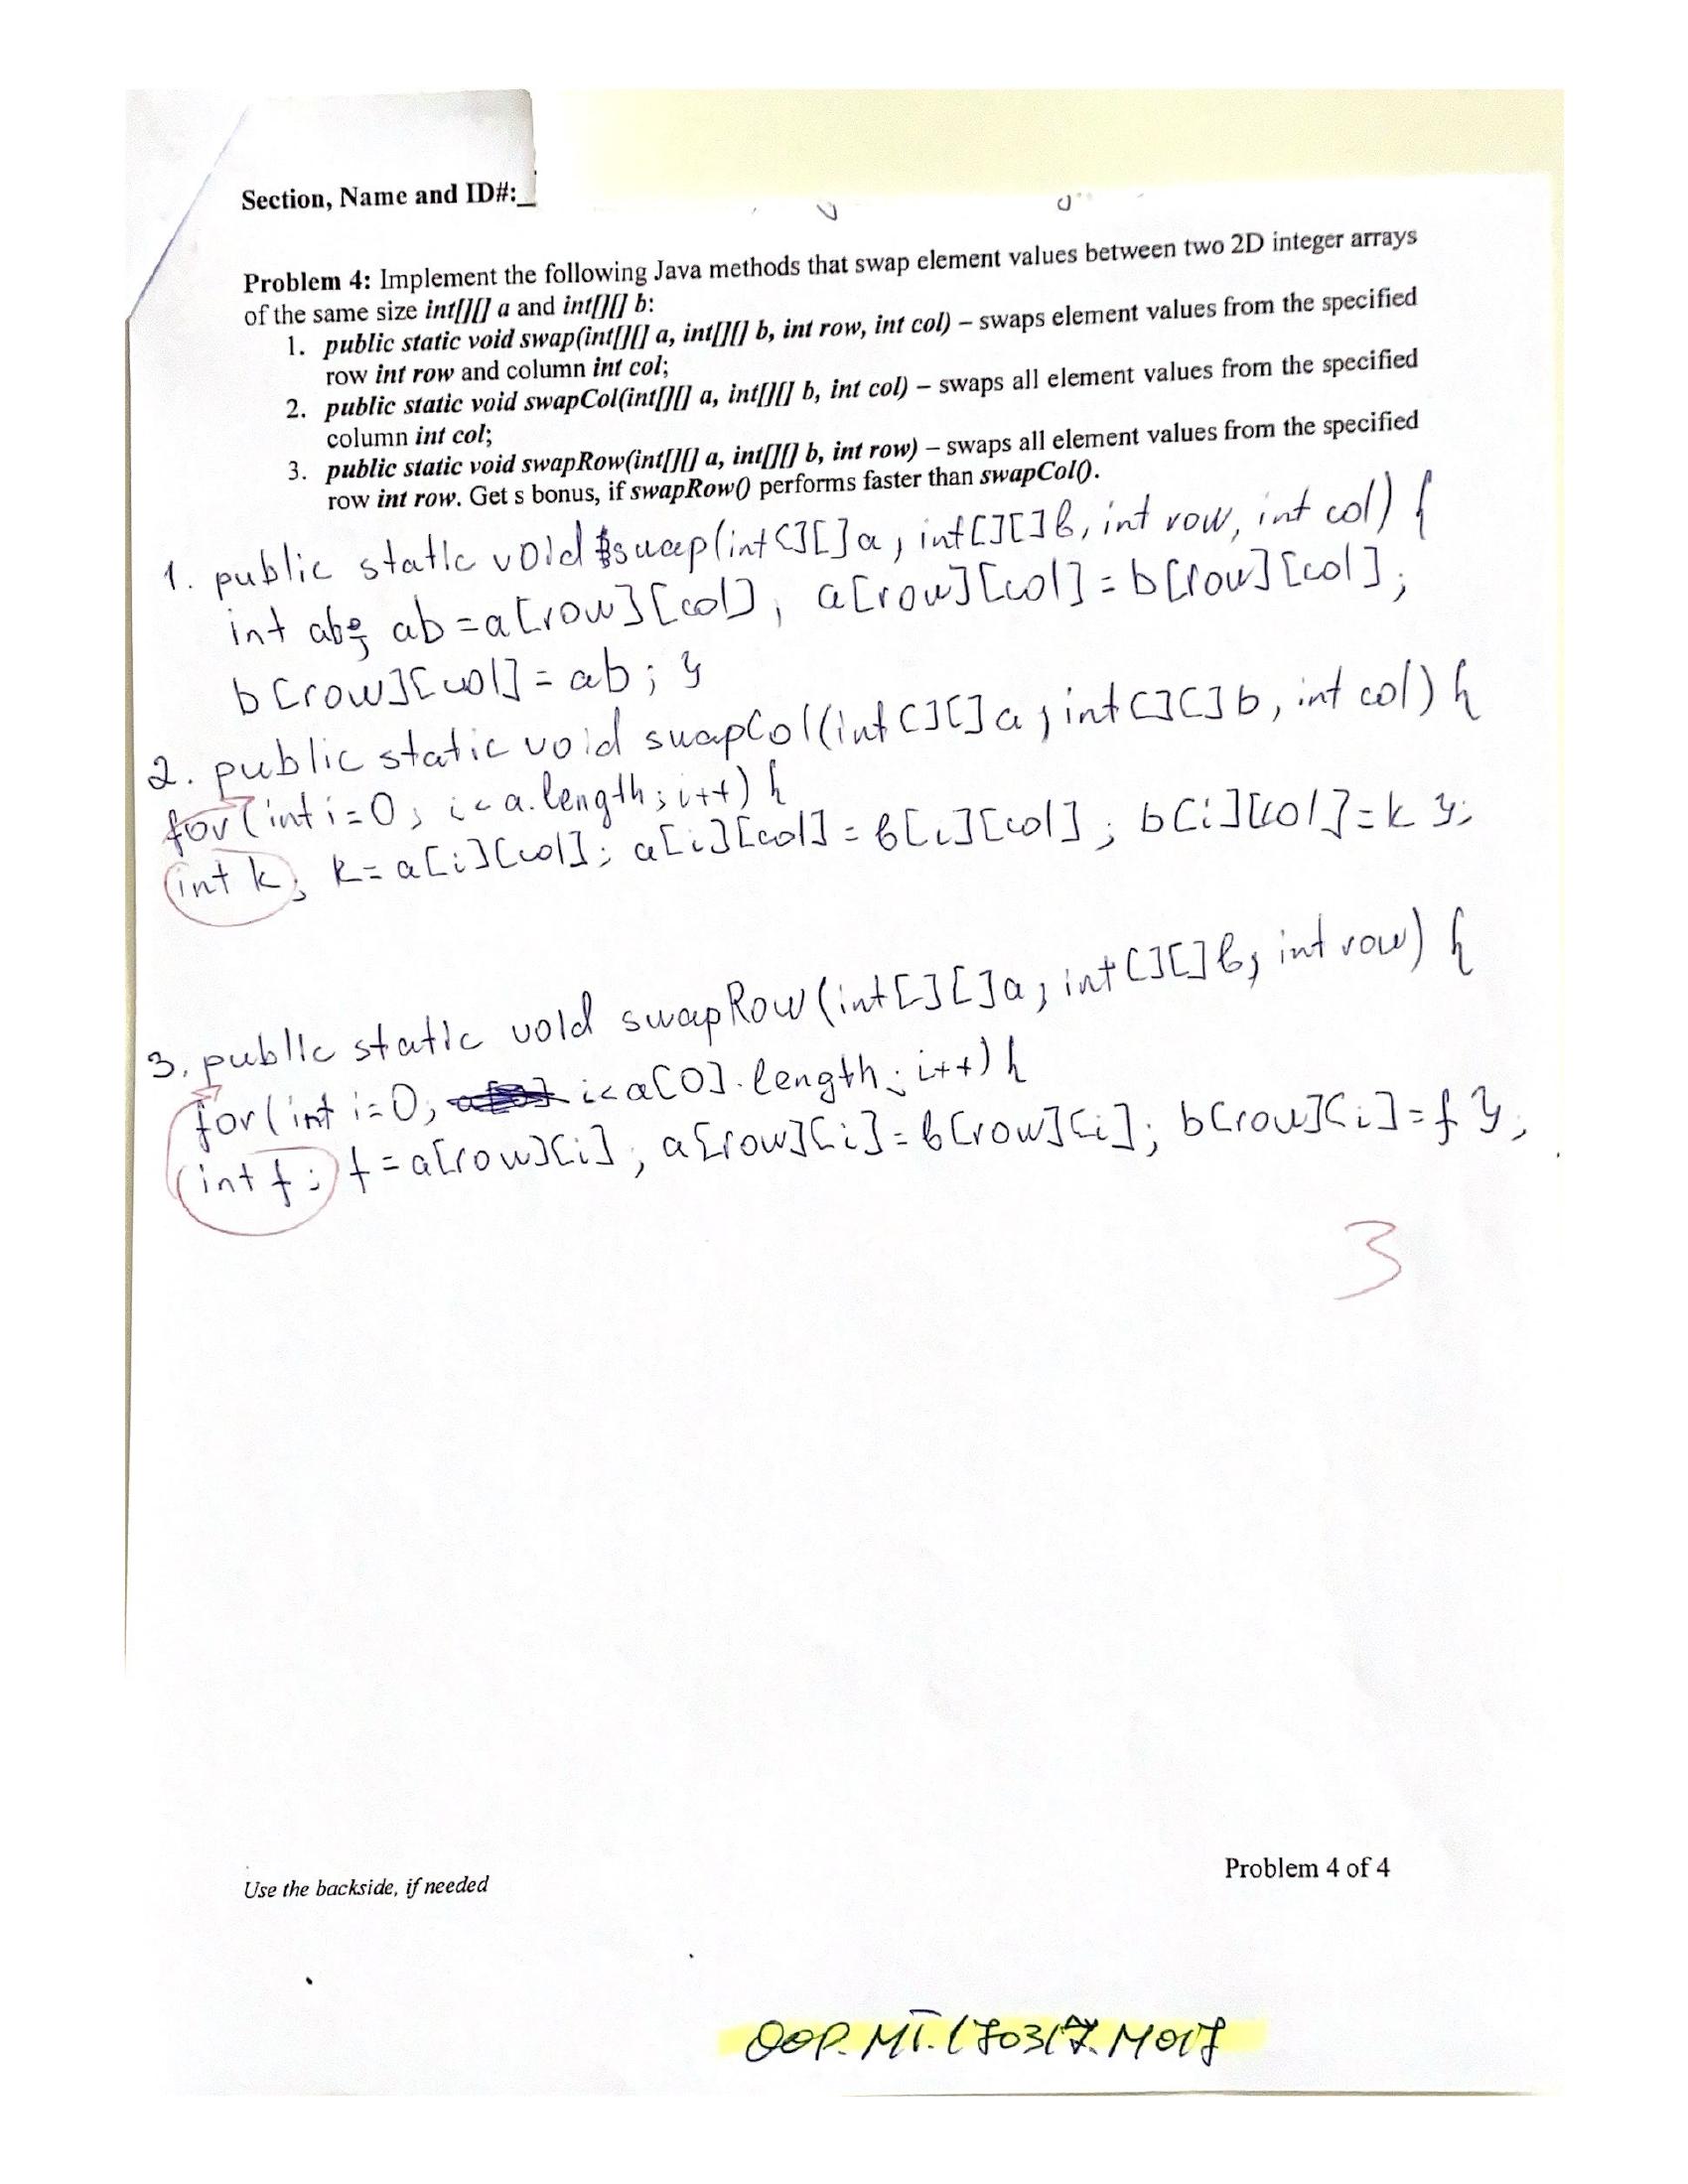 Section, Name and ID#:_
Problem 4: Implement the following Java methods that swap element values between two 2D integer arrays
of the same size int[][] a and int[][] b:
1. public static void swap(int[][] a, int[][] b, int row, int col) – swaps element values from the specified
row int row and column int col;
2. public static void swapCol(int[][] a, int[][] b, int col) – swaps all element values from the specified
column int col;
3. public static void swapRow(int[][] a, int[][] b, int row) – swaps all element values from the specified
row int row. Get s bonus, if swapRow() performs faster than swapCol().
1. public static void swap(int[][]a, int[][]b, int row, int col) {
int ab; ab=a[row][col]; a[row][col]=b[row][col];
b[row][col]=ab; }
2. public static void swapCol(int[][]a, int[][]b, int col) {
for(int i=0; i<a.length; i++) {
int k; k=a[i][col]; a[i][col]=b[i][col]; b[i][col]=k };
3. public static void swapRow(int[][]a, int[][]b, int row) {
for(int i=0; i<a[0].length; i++) {
int f; f=a[row][i]; a[row][i]=b[row][i]; b[row][i]=f };
3
Use the backside, if needed
Problem 4 of 4
OOP.MT.170317.M017